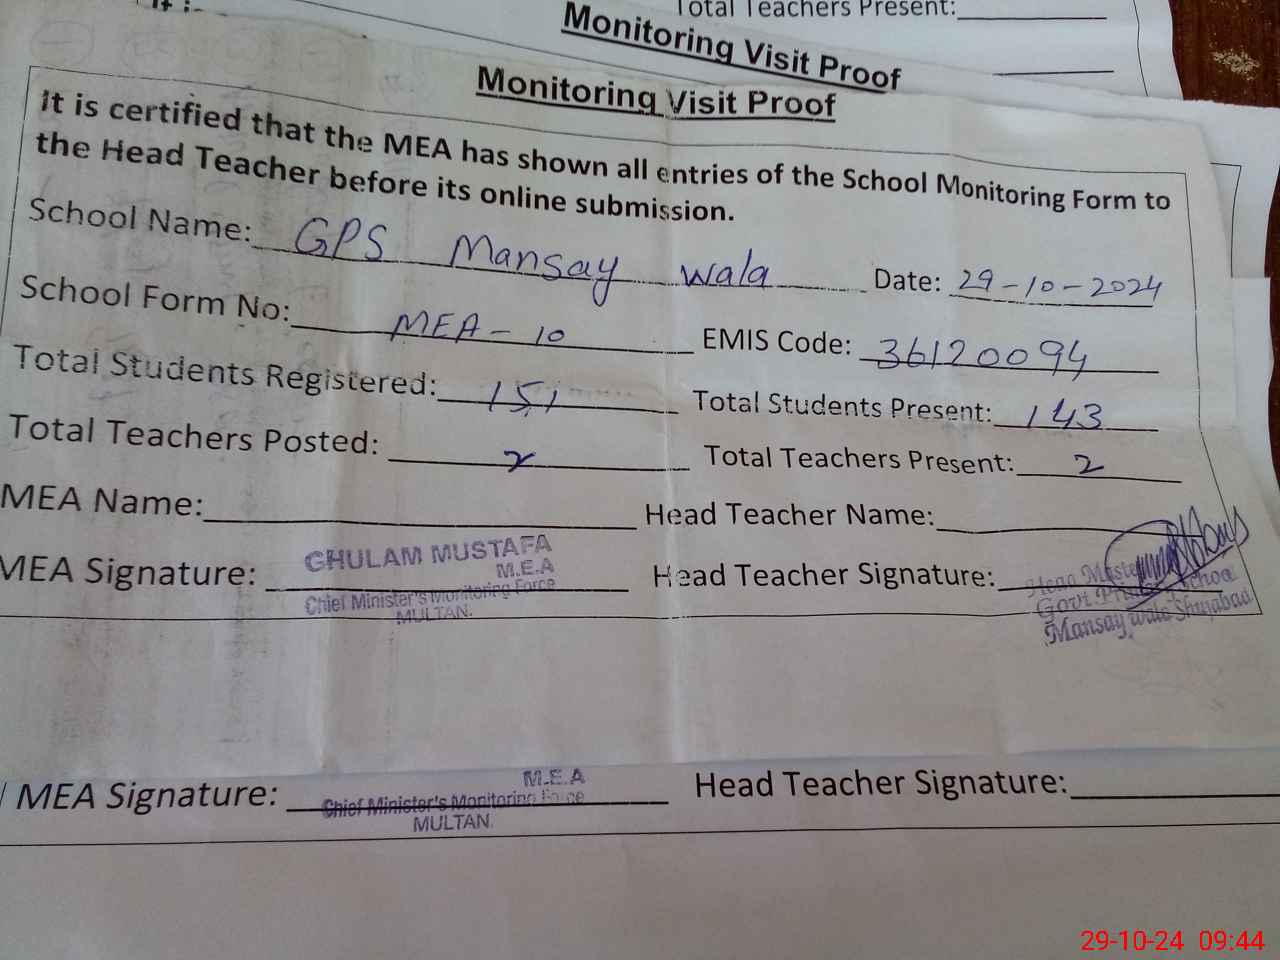 It is
Total Teachers Present:
Monitoring Visit Proof
Monitoring Visit Proof
It is certified that the MEA has shown all entries of the School Monitoring Form to
the Head Teacher before its online submission.
School Name: GPS Mansay wala Date: 29-10-2024
School Form No: MEA-10 EMIS Code: 36120094
Total Students Registered: 151 Total Students Present: 143
Total Teachers Posted: 2 Total Teachers Present: 2
MEA Name: Head Teacher Name:
MEA Signature: GHULAM MUSTAFA Head Teacher Signature:
M.E.A
Chief Minister's Monitoring Force
MULTAN.
Head Master
Govt. School
Mansay wala Shujabad
MEA Signature: M.E.A Head Teacher Signature:
Chief Minister's Monitoring Force
MULTAN.
29-10-24 09:44